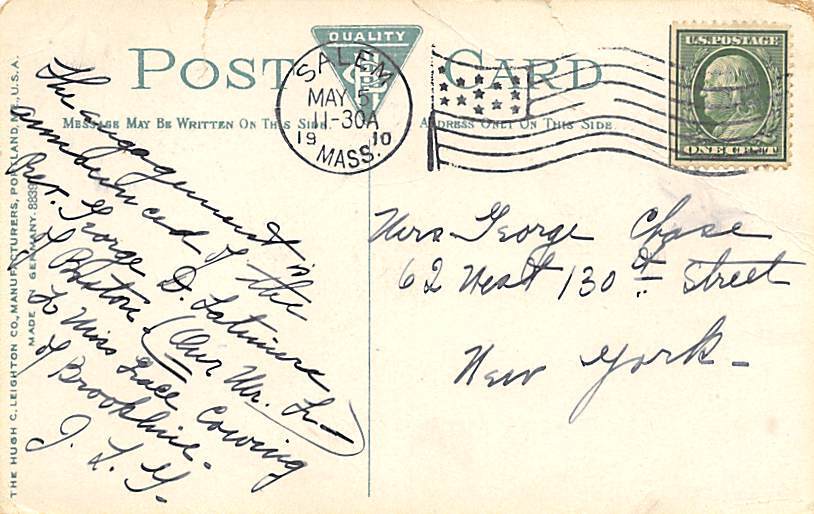 QUALITY
POST CARD
MESSAGE MAY BE WRITTEN ON THIS SIDE.
ADDRESS ONLY ON THIS SIDE
SALEM
MAY 5
11-30A
19 10
MASS.
U.S. POSTAGE
ONE CENT
The engagement is
announced of the
Rev. George D. Latimer
of Boston (Our Mr. L—)
to Miss Grace Cowing
of Brookline.
J. L. Y.
Mrs George Chase
62 West 130th Street
New York -
THE HUGH C. LEIGHTON CO., MANUFACTURERS, PORTLAND, ME., U.S.A.
MADE IN GERMANY.